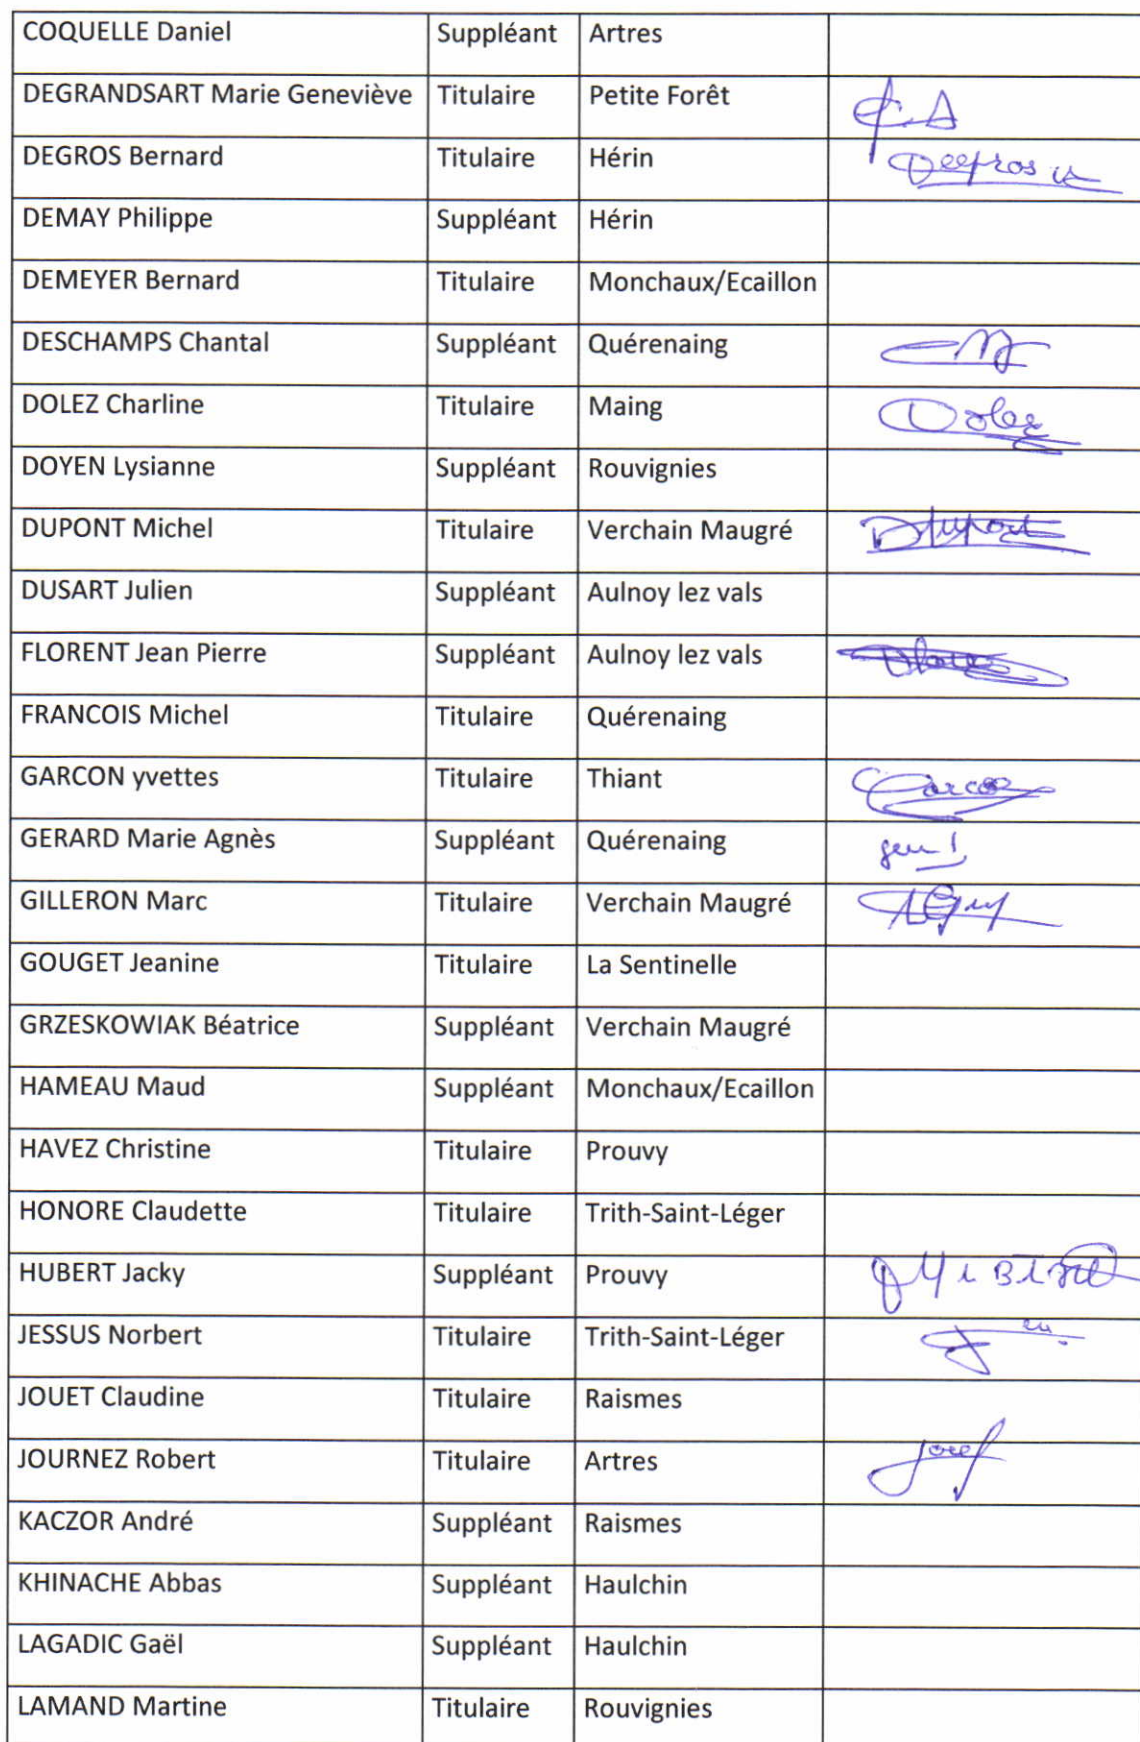 COQUELLE Daniel Suppléant Artres
DEGRANDSART Marie Geneviève Titulaire Petite Forêt
DEGROS Bernard Titulaire Hérin
DEMAY Philippe Suppléant Hérin
DEMEYER Bernard Titulaire Monchaux/Ecaillon
DESCHAMPS Chantal Suppléant Quérenaing
DOLEZ Charline Titulaire Maing Dolez
DOYEN Lysianne Suppléant Rouvignies
DUPONT Michel Titulaire Verchain Maugré Dupont
DUSART Julien Suppléant Aulnoy lez vals
FLORENT Jean Pierre Suppléant Aulnoy lez vals
FRANCOIS Michel Titulaire Quérenaing
GARCON yvettes Titulaire Thiant Garcon
GERARD Marie Agnès Suppléant Quérenaing
GILLERON Marc Titulaire Verchain Maugré
GOUGET Jeanine Titulaire La Sentinelle
GRZESKOWIAK Béatrice Suppléant Verchain Maugré
HAMEAU Maud Suppléant Monchaux/Ecaillon
HAVEZ Christine Titulaire Prouvy
HONORE Claudette Titulaire Trith-Saint-Léger
HUBERT Jacky Suppléant Prouvy
JESSUS Norbert Titulaire Trith-Saint-Léger
JOUET Claudine Titulaire Raismes
JOURNEZ Robert Titulaire Artres
KACZOR André Suppléant Raismes
KHINACHE Abbas Suppléant Haulchin
LAGADIC Gaël Suppléant Haulchin
LAMAND Martine Titulaire Rouvignies